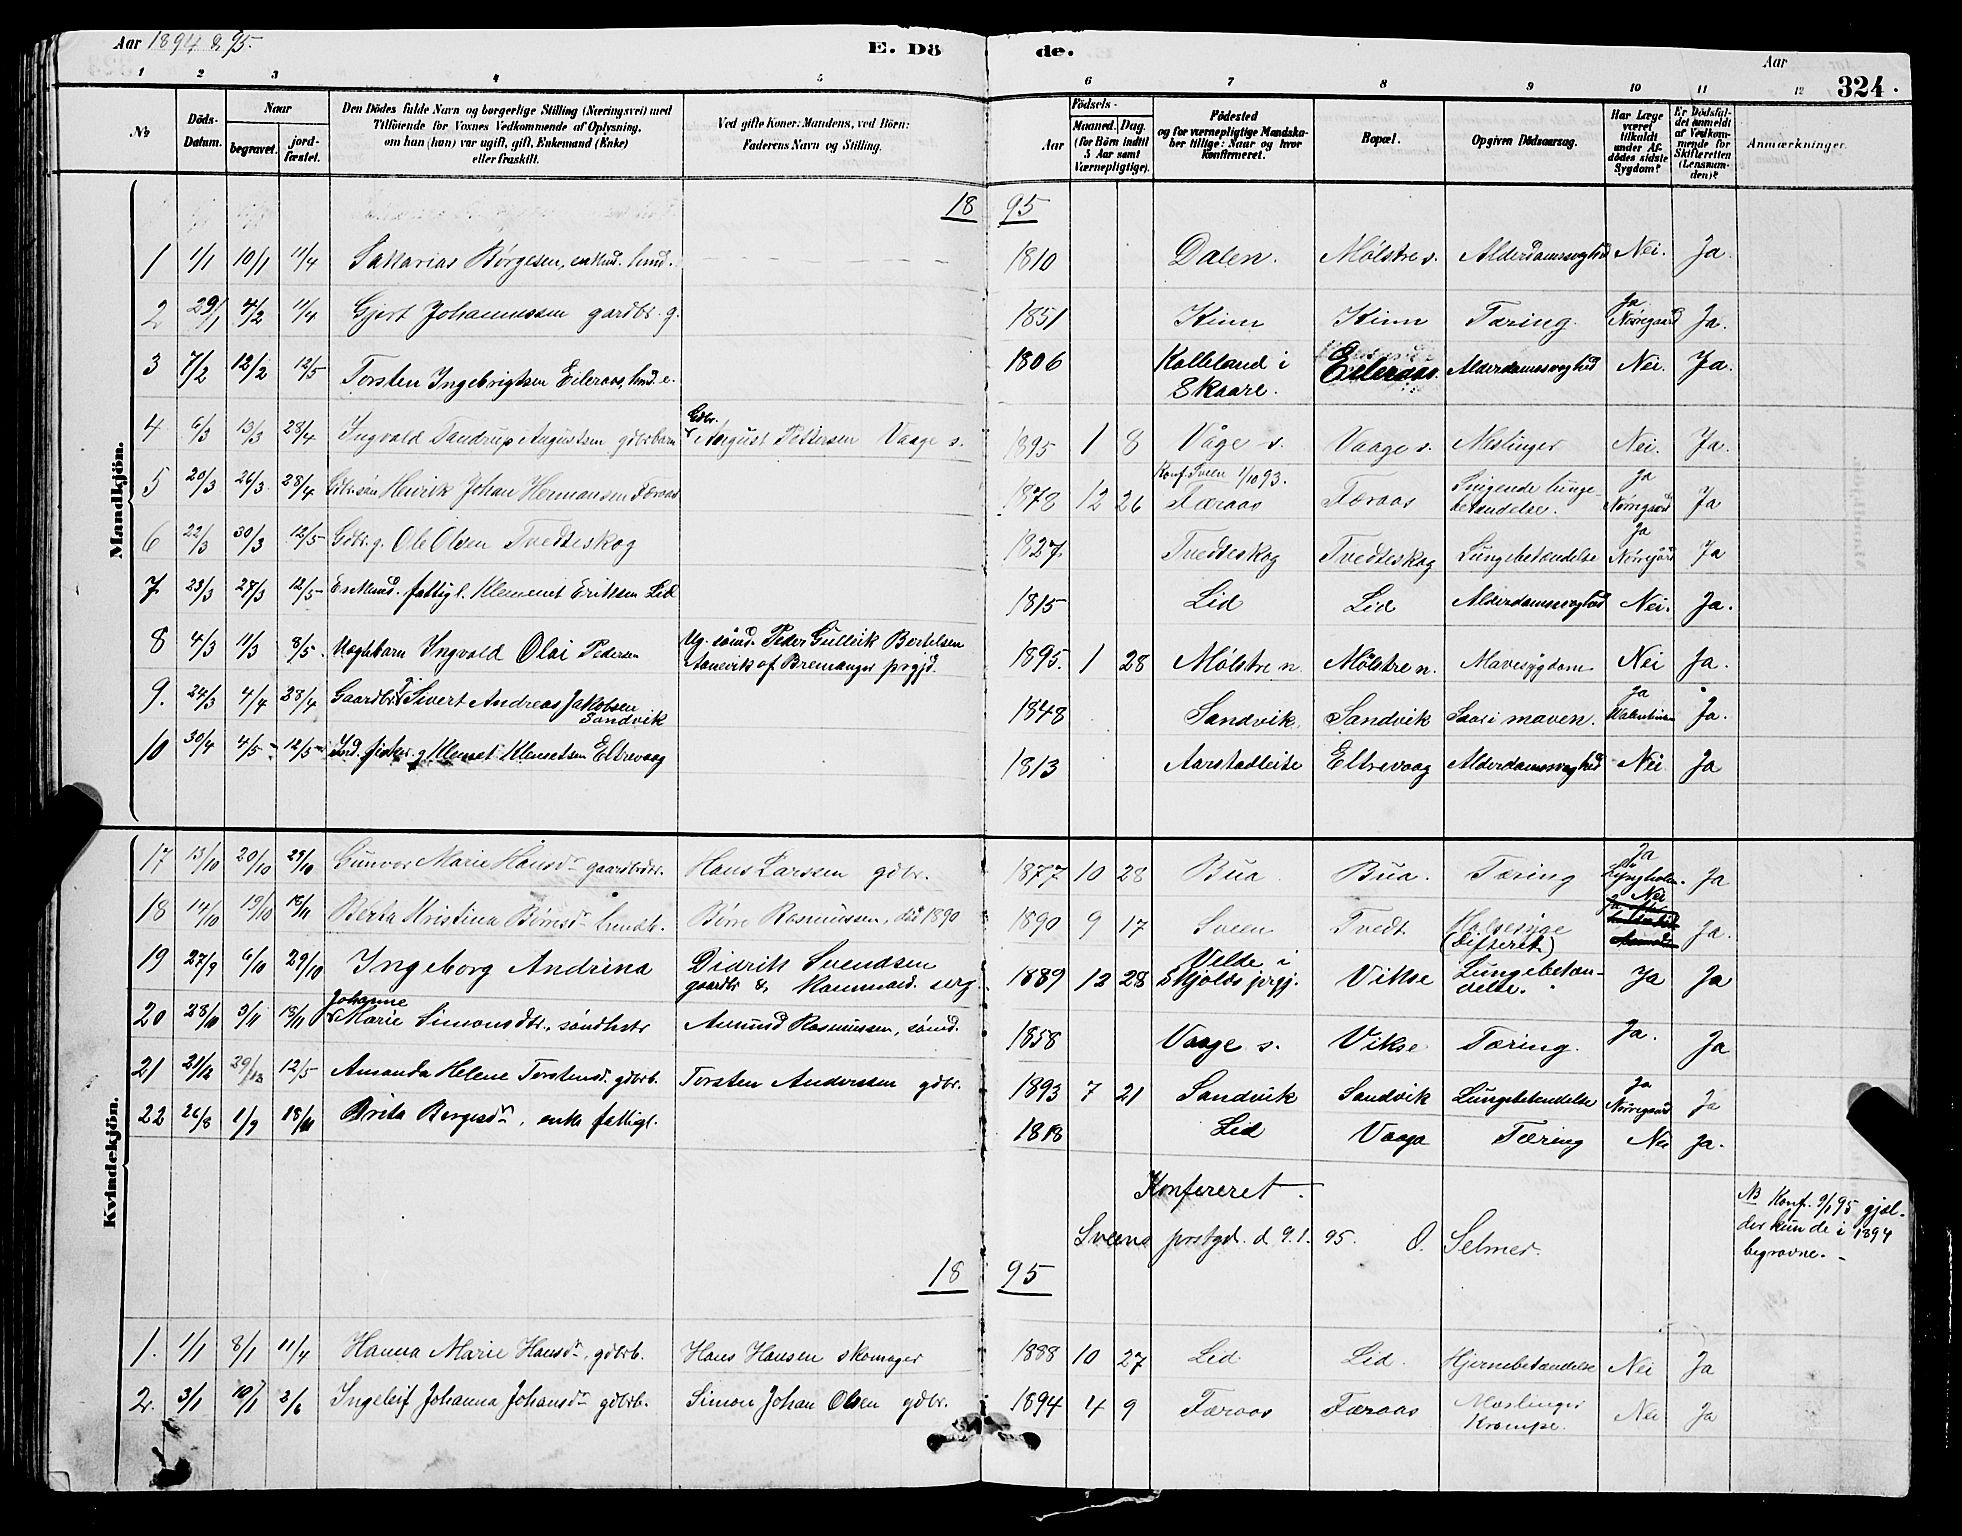 Aar 1894 & 95.
E. Dö de.
Aar
324.
1 2 3 4 5 6 7 8 9 10 11 12
No
Döds-Datum.
Naar
begravet.
jord-fæstet.
Den Dödes fulde Navn og borgerlige Stilling (Næringsvei) med
Tilföiende for Voxnes Vedkommende af Oplysning,
om han (hun) var ugift, gift, Enkemand (Enke)
eller fraskilt.
Ved gifte Koner: Mandens, ved Börn:
Faderens Navn og Stilling.
Födsels-
Aar
Maaned. Dag.
(for Börn indtil
5 Aar samt
Værnepligtige).
Födested
og for værnepligtige Mandska-
ber tillige: Naar og hvor
Konfirmeret.
Bopæl.
Opgiven Dödsaarsag.
Har Læge
været
tilkaldt
under Af-
dödes sidste
Sygdom?
Er Dödsfal-
det anmeldt
af Vedkom-
mende for
Skifteretten
(Lensman-
den)?
Anmærkninger.
Mandkjön.
18 95
1 1/1 10/1 11/4 Sakarias Børgesen, enkmd. hmd. 1810 Dalen. Mølstre s. Alderdomssvaghed Nei. Ja.
2 29/1 4/2 11/4 Gjert Johannessen gardbr. g. 1851 Kinn Kinn Tæring. Ja Nørregaard Ja.
3 7/2 12/2 12/5 Torsten Ingebrigtsen Eileraas, hmd. e. 1806 Kalleland i Skaare. Eileraas. Alderdomssvaghed Nei. Ja.
4 6/3 13/3 28/4 Ingvald Sandrup Augustsen gdbrbarn Gdbr. August Pettersen Vaage s. 1895 1 8 Våge s. Vaage s. Meslinger Nei. Ja.
5 20/3 26/3 28/4 Gdbrsøn Henrik Johan Hermansen Færaas 1878 12 26 Konf. Sveen 1/10 93. Færaas Færaas Snigende lunge-betændelse. Ja Nørregaard Ja
6 22/3 30/3 12/5 Gdbr. g. Ole Olsen Tvedteskog 1827 Tvedteskog Tvedteskog Lungebetændelse Ja Nørregård Ja
7 23/3 27/3 12/5 Enkmd. fattigl. Klemmet Eriksen Lid 1815 Lid Lid Alderdomssvaghed Nei. Ja.
8 4/3 11/3 8/5 Uægtebarn Ingvald Olai Pedersen Ug. sømd. Peder Gullvik Bertelsen Aanevik af Bremanger prgjd. 1895. 1 28 Mølstre n. Mølstre n. Mavesygdom Nei Ja.
9. 24/3 4/4 28/4 Gaardbr. Sivert Andreas Jakobsen Sandvik 1848 Sandvik. Sandvik Saar i maven. Ja Valentinsen Ja.
10 30/4 4/5 12/5 Ind. fisker g. Klemet Klemetsen Eltrevaag 1813 Aarstadleite Eltrevaag Alderdomssvaghed Nei Ja
Kvindekjön.
17 13/10 20/10 29/10 Gunvor Marie Hansdr. gaardbrdtr. Hans Larssen gdbr. 1877 10 28 Bua Bua. Tæring Ja Lyngholm. Ja
18 14/10 19/10 18/11 Berta Kristina Børresdr. hmdb. Børre Rasmussen, død 1890 1890 9 17 Sveen Tvedt Halssyge (difterit) Nei Ja.
19 27/9 6/10 29/10 Ingeborg Andrina Didrik Svendsen gaardbr & Kommand. serg. 1889 12 28 Velde i Skjolds prgj. Vikse Lungebetæn-delse. Ja Ja
20 28/10 3/11 18/11 Johanne Marie Simonsdtr., sømdhstr Amund Rasmussen, sømd. 1858 Vaage s. Vikse Tæring. Ja. Ja
21 21/12 29/12 12/5 Amanda Helene Torstensd. gdbrb. Torsten Anderssen gdbr. 1893 7 21 Sandvik Sandvik Lungebetændelse Ja Nørregaard Ja
22 26/8 1/9 18/11 Brita Børgesdr., enke fattigl. 1818 Lid Vaage Tæring Nei Ja.
Konfereret.
Sveens prstgd. d. 9. 1. 95. O. Selmer.
NB Konf. 9/1 95 gjæl-
der kun de i 1894
begravne.
18 95
1. 1/1 8/1 11/4 Hanna Marie Hansdr., gdbrb. Hans Hansen skomager 1888 10 27 Lid Lid. Hjernebetændelse Nei Ja
2. 3/1 10/1 2/6 Ingeleif Johanna Johansdr. gdbrb. Simon Johan Olsen gdbr. 1894 4 9 Færaas Færaas Mæslinger Krampe. Nei Ja